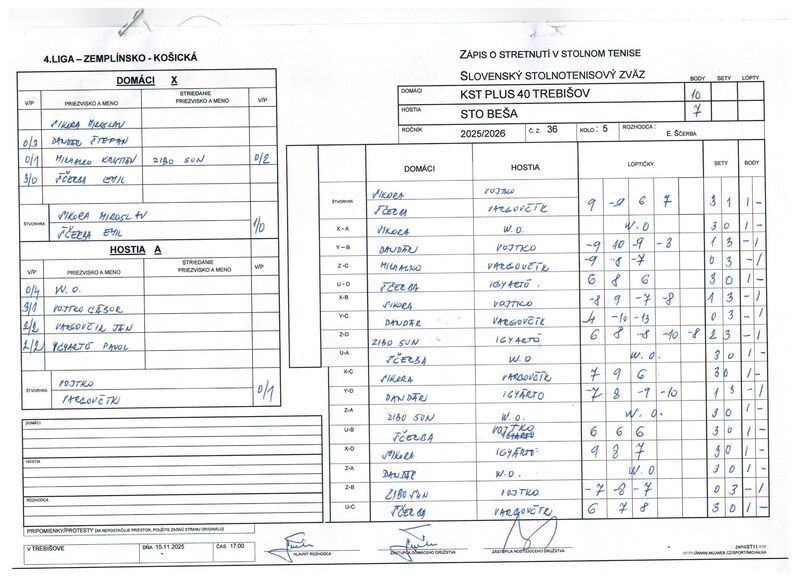 4.LIGA – ZEMPLÍNSKO - KOŠICKÁ
ZÁPIS O STRETNUTÍ V STOLNOM TENISE
SLOVENSKÝ STOLNOTENISOVÝ ZVÄZ
BODY SETY LOPTY
DOMÁCI KST PLUS 40 TREBIŠOV 10
HOSTIA STO BEŠA 7
ROČNÍK 2025/2026 Č. Z. 36 KOLO : 5 ROZHODCA : E. ŠČERBA
DOMÁCI X
V/P PRIEZVISKO A MENO STRIEDANIE PRIEZVISKO A MENO V/P
SIKORA MIROSLAV
0/3 DANDÁR ŠTEFAN
0/1 MICHALKO KRISTIÁN ZIBO SUN 0/2
3/0 ŠČERBA EMIL
ŠTVORHRA SIKORA MIROSLAV
ŠČERBA EMIL 1/0
HOSTIA A
V/P PRIEZVISKO A MENO STRIEDANIE PRIEZVISKO A MENO V/P
0/4 W.O.
3/1 VOJTKO GÁBOR
2/2 VARGOVČÍK JÁN
2/2 IGYARTÓ PAVOL
ŠTVORHRA VOJTKO
VARGOVČÍK 0/1
DOMÁCI
HOSTIA
ROZHODCA
PRIPOMIENKY/PROTESTY (AK NEPOSTAČUJE PRIESTOR, POUŽITE ZADNÚ STRANU ORIGINÁLU)
V TREBIŠOVE DŇA 15.11.2025 ČAS 17.00
DOMÁCI HOSTIA LOPTIČKY SETY BODY
ŠTVORHRA SIKORA VOJTKO
ŠČERBA VARGOVČÍK 9 -9 6 7 3 1 1 -
X - A SIKORA W.O. W.O 3 0 1 -
Y – B DANDÁR VOJTKO -9 10 -9 -8 1 3 - 1
Z -C MICHALKO VARGOVČÍK -9 -8 -7 0 3 - 1
U - D ŠČERBA IGYARTÓ 6 8 6 3 0 1 -
X-B SIKORA VOJTKO -8 9 -7 -8 1 3 - 1
Y-C DANDÁR VARGOVČÍK -4 -10 -13 0 3 - 1
Z-D ZIBO SUN IGYÁRTÓ 6 8 -8 -10 -8 2 3 - 1
U-A ŠČERBA W.O W.O. 3 0 1 -
X-C SIKORA VARGOVČÍK 7 9 6 3 0 1 -
Y-D DANDÁR IGYÁRTO -7 8 -9 -10 1 3 - 1
Z-A ZIBO SUN W.O. W.O. 3 0 1 -
U-B ŠČERBA VOJTKO 6 6 6 3 0 1 -
X-D SIKORA IGYÁRTÓ 9 8 7 3 0 1 -
Z-A DANDÁR W.O. W.O 3 0 1 -
Z-B ZIBO SUN VOJTKO -7 -8 -7 0 3 - 1
U-C ŠČERBA VARGOVČÍK 6 7 8 3 0 1 -
HLAVNÝ ROZHODCA
ZÁSTUPCA DOMÁCEHO DRUŽSTVA
ZÁSTUPCA HOSŤUJÚCEHO DRUŽSTVA
ZAPISST11.RTF
HTTP://WWW.MUJWEB.CZ/SPORT/MICHALKA